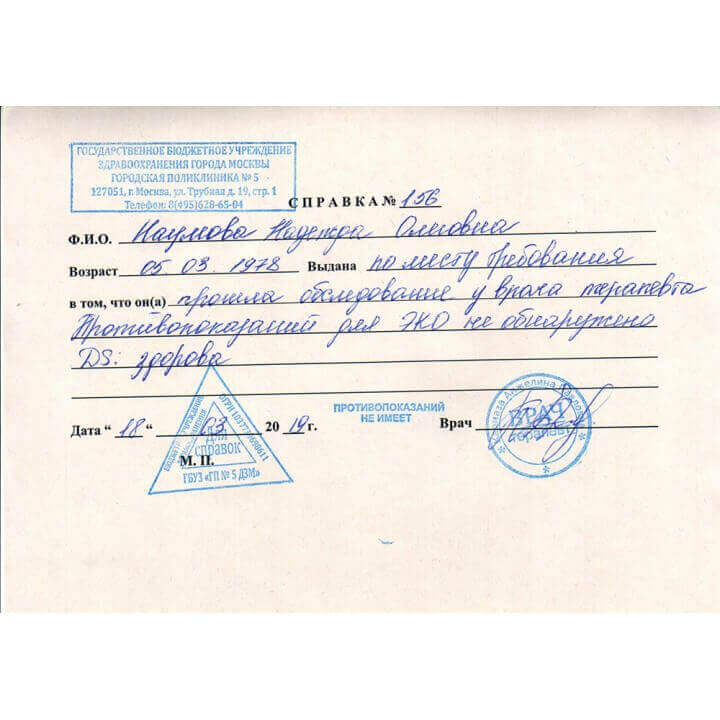 ГОСУДАРСТВЕННОЕ БЮДЖЕТНОЕ УЧРЕЖДЕНИЕ
ЗДРАВООХРАНЕНИЯ ГОРОДА МОСКВЫ
ГОРОДСКАЯ ПОЛИКЛИНИКА № 5
127051, г. Москва, ул. Трубная д. 19, стр. 1
Телефон: 8(495)628-65-04
СПРАВКА № 156
Ф.И.О. Наумова Надежда Олеговна
Возраст 05 03. 1978 Выдана по месту требования
в том, что он(а) прошла обследование у врача терапевта
Противопоказаний для ЭКО не обнаружено
DS: здорова
ПРОТИВОПОКАЗАНИЙ
НЕ ИМЕЕТ
Дата " 18 " 03 2019 г. Врач
БЮДЖЕТНОЕ УЧРЕЖДЕНИЕ
ОГРН
Для
справок
М. П.
ГБУЗ «ГП № 5 ДЗМ»
Анжелина Павловна
ВРАЧ
терапевт